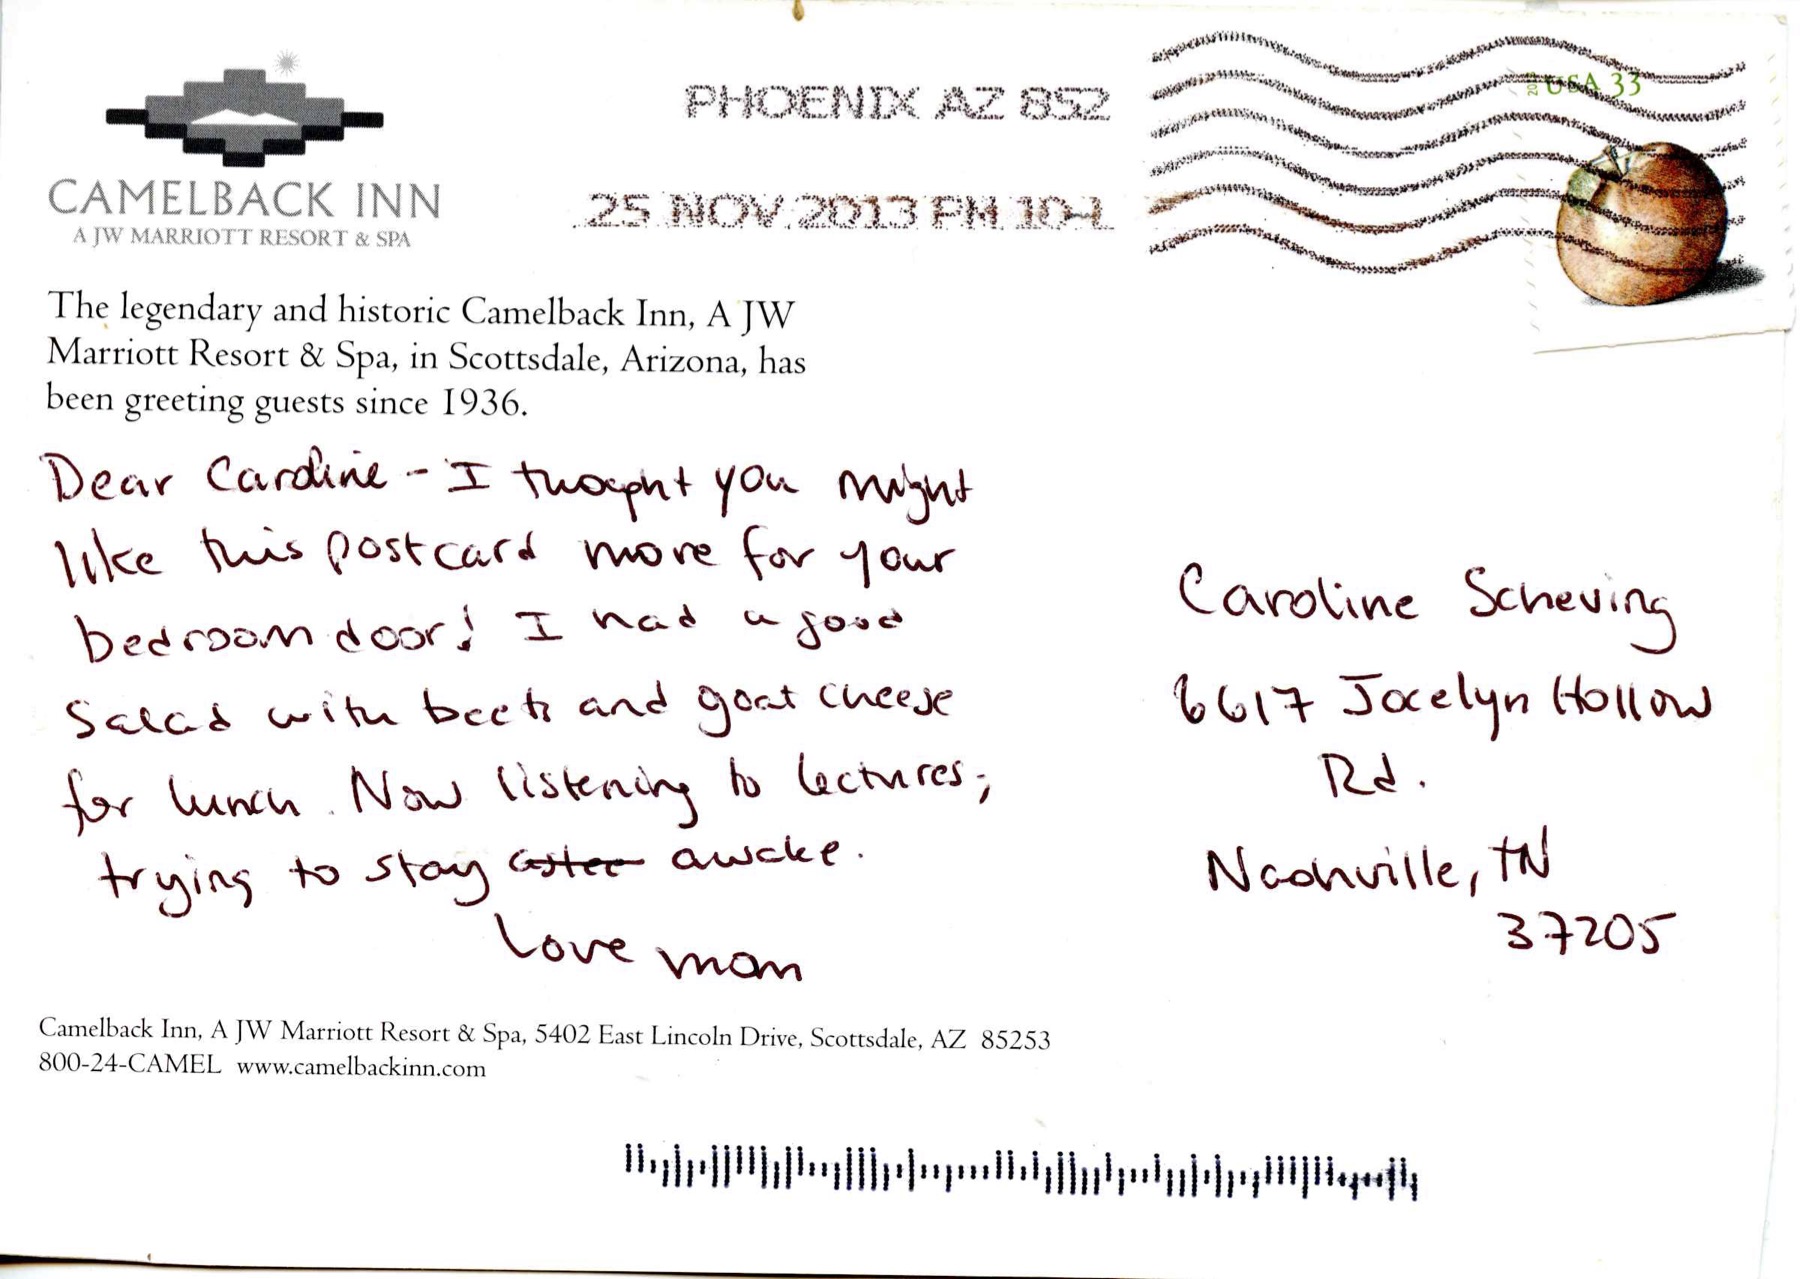 CAMELBACK INN
A JW MARRIOTT RESORT & SPA
PHOENIX AZ 852
25 NOV 2013 PM 10 L
USA 33
The legendary and historic Camelback Inn, A JW
Marriott Resort & Spa, in Scottsdale, Arizona, has
been greeting guests since 1936.
Dear Caroline - I thought you might
like this postcard more for your
bedroom door! I had a good
salad with beets and goat cheese
for lunch. Now listening to lectures;
trying to stay awake.
Love mom
Caroline Scheving
6617 Jocelyn Hollow
Rd.
Nashville, TN
37205
Camelback Inn, A JW Marriott Resort & Spa, 5402 East Lincoln Drive, Scottsdale, AZ 85253
800-24-CAMEL www.camelbackinn.com